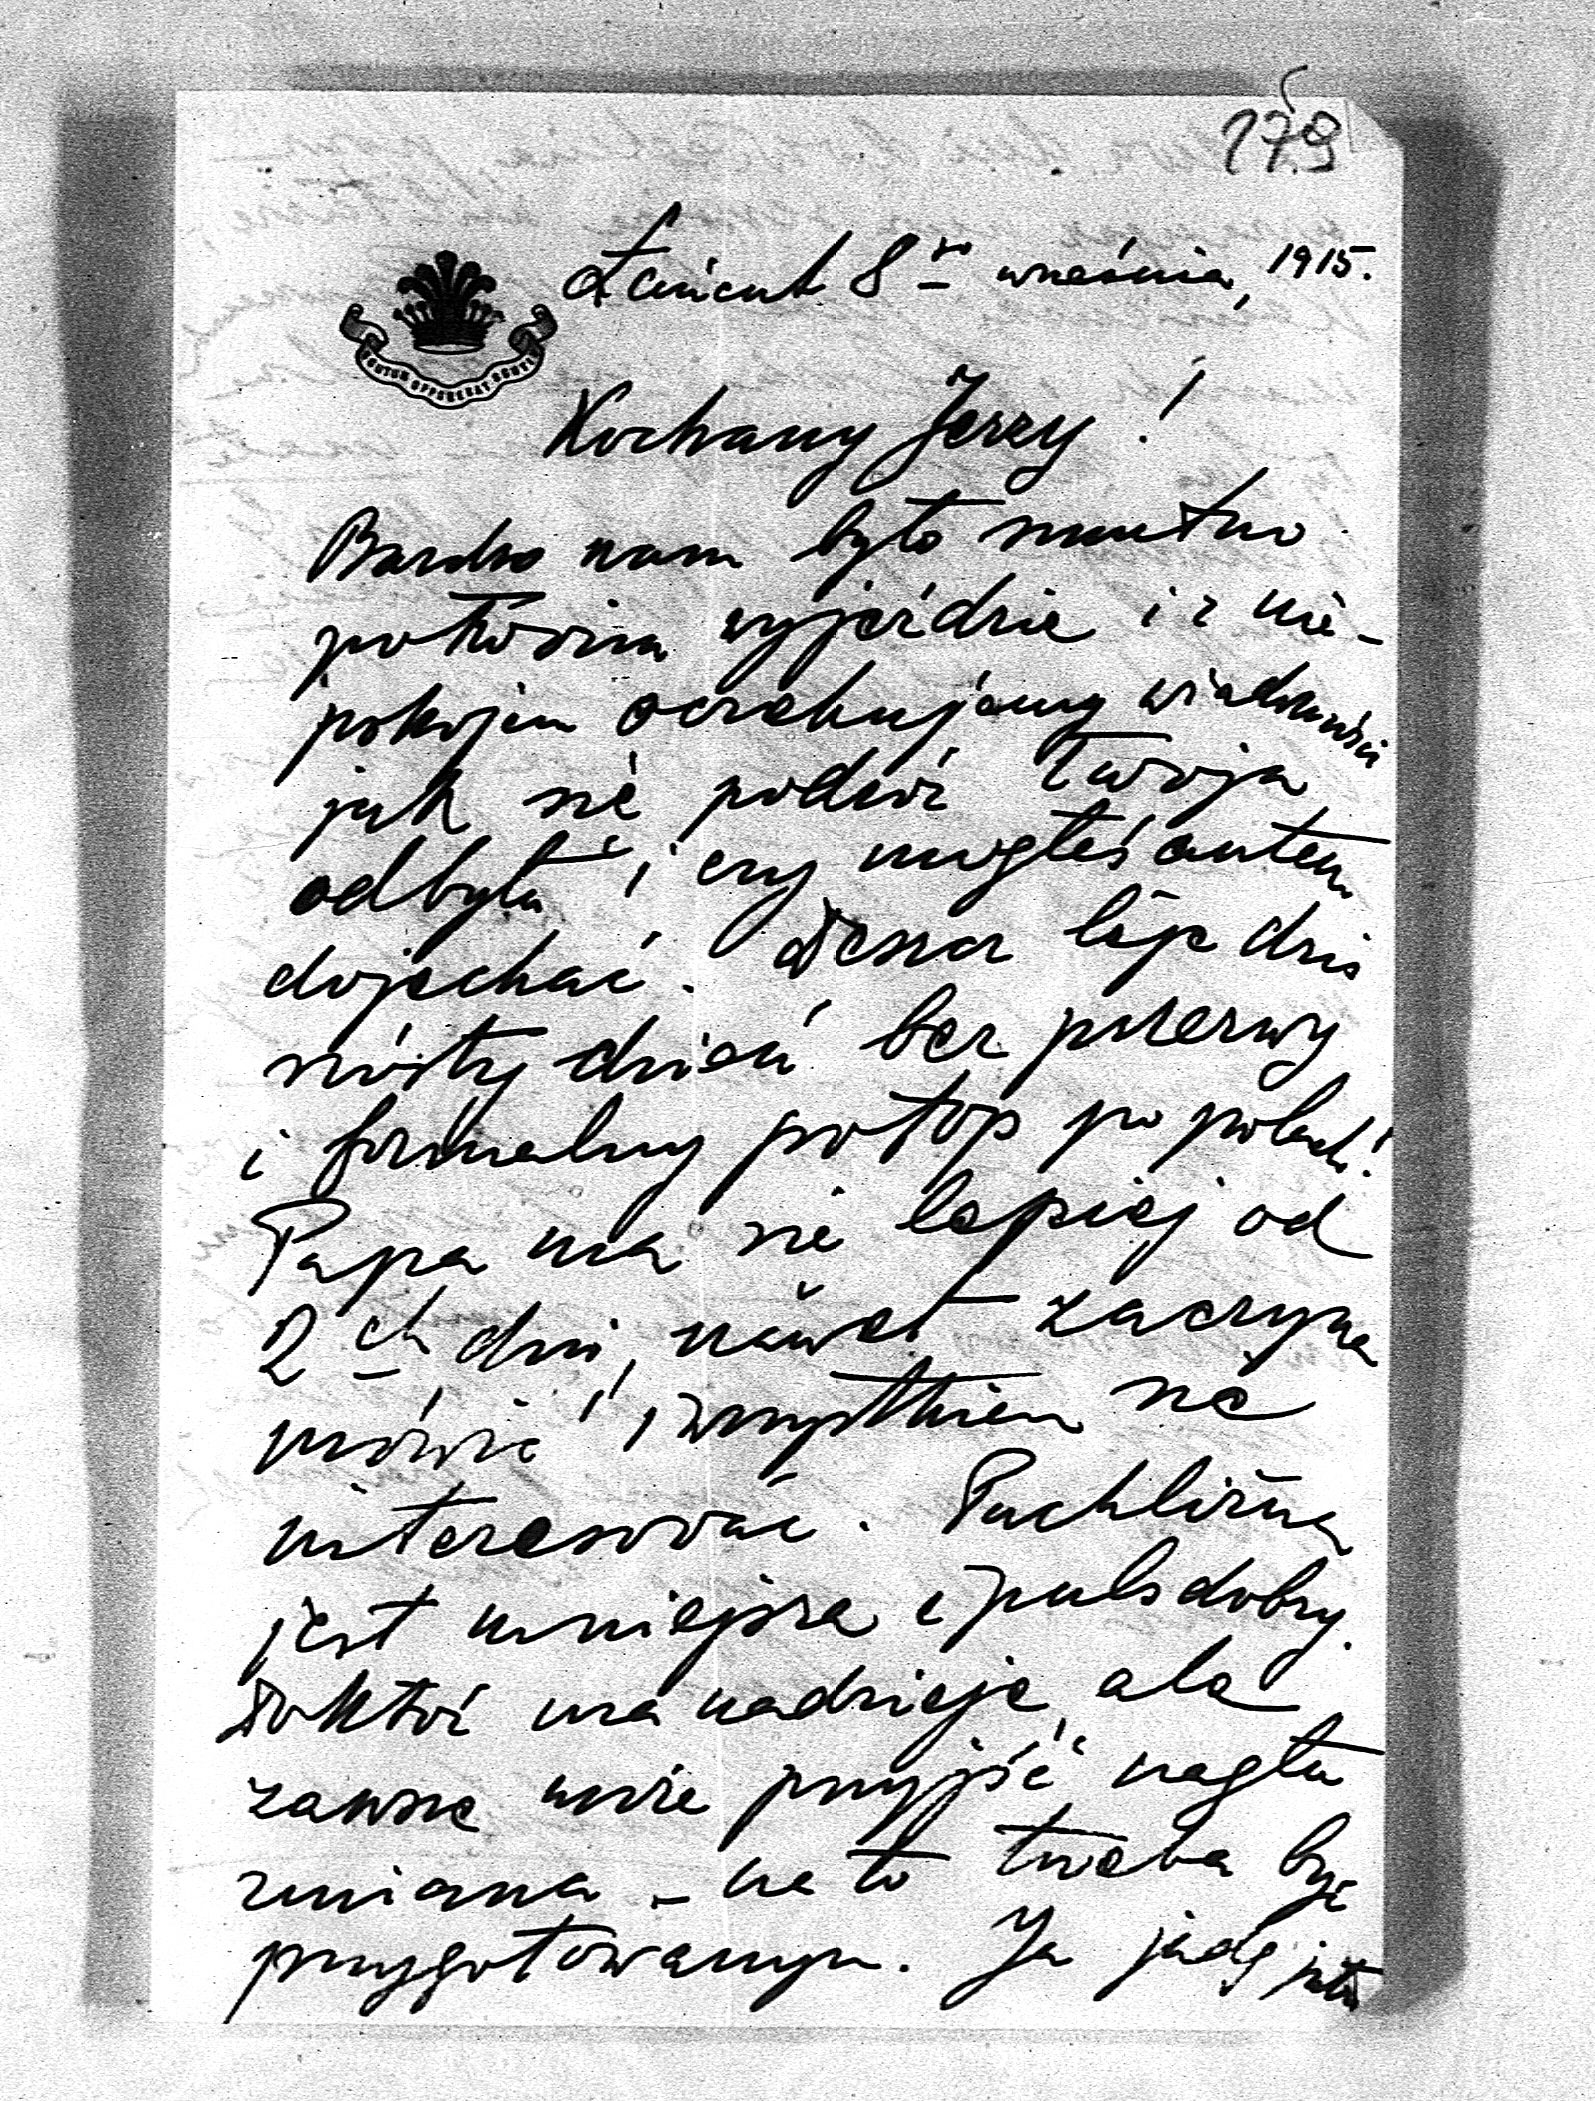 179
Łańcut 8go września, 1915.
FORTUM OPPONERAT FORTI
Kochany Jerzy!
Bardzo nam było smutno
po Twoim wyjeździe i z nie-
pokojem oczekujemy wiadomości
jak się podróż Twoja
odbyła i czy mogłeś autem
dojechać. Deszcz leje dziś
szósty dzień bez przerwy
i formalny potop po polach!
Papa ma się lepiej od
2ch dni, nawet zaczyna
mówić i wszystkiem się
interesować. Puchlizna
jest mniejsza i puls dobry.
Doktór ma nadzieję, ale
zawsze może przyjść nagła
zmiana – na to trzeba być
przygotowanym. Ja jadę jutro